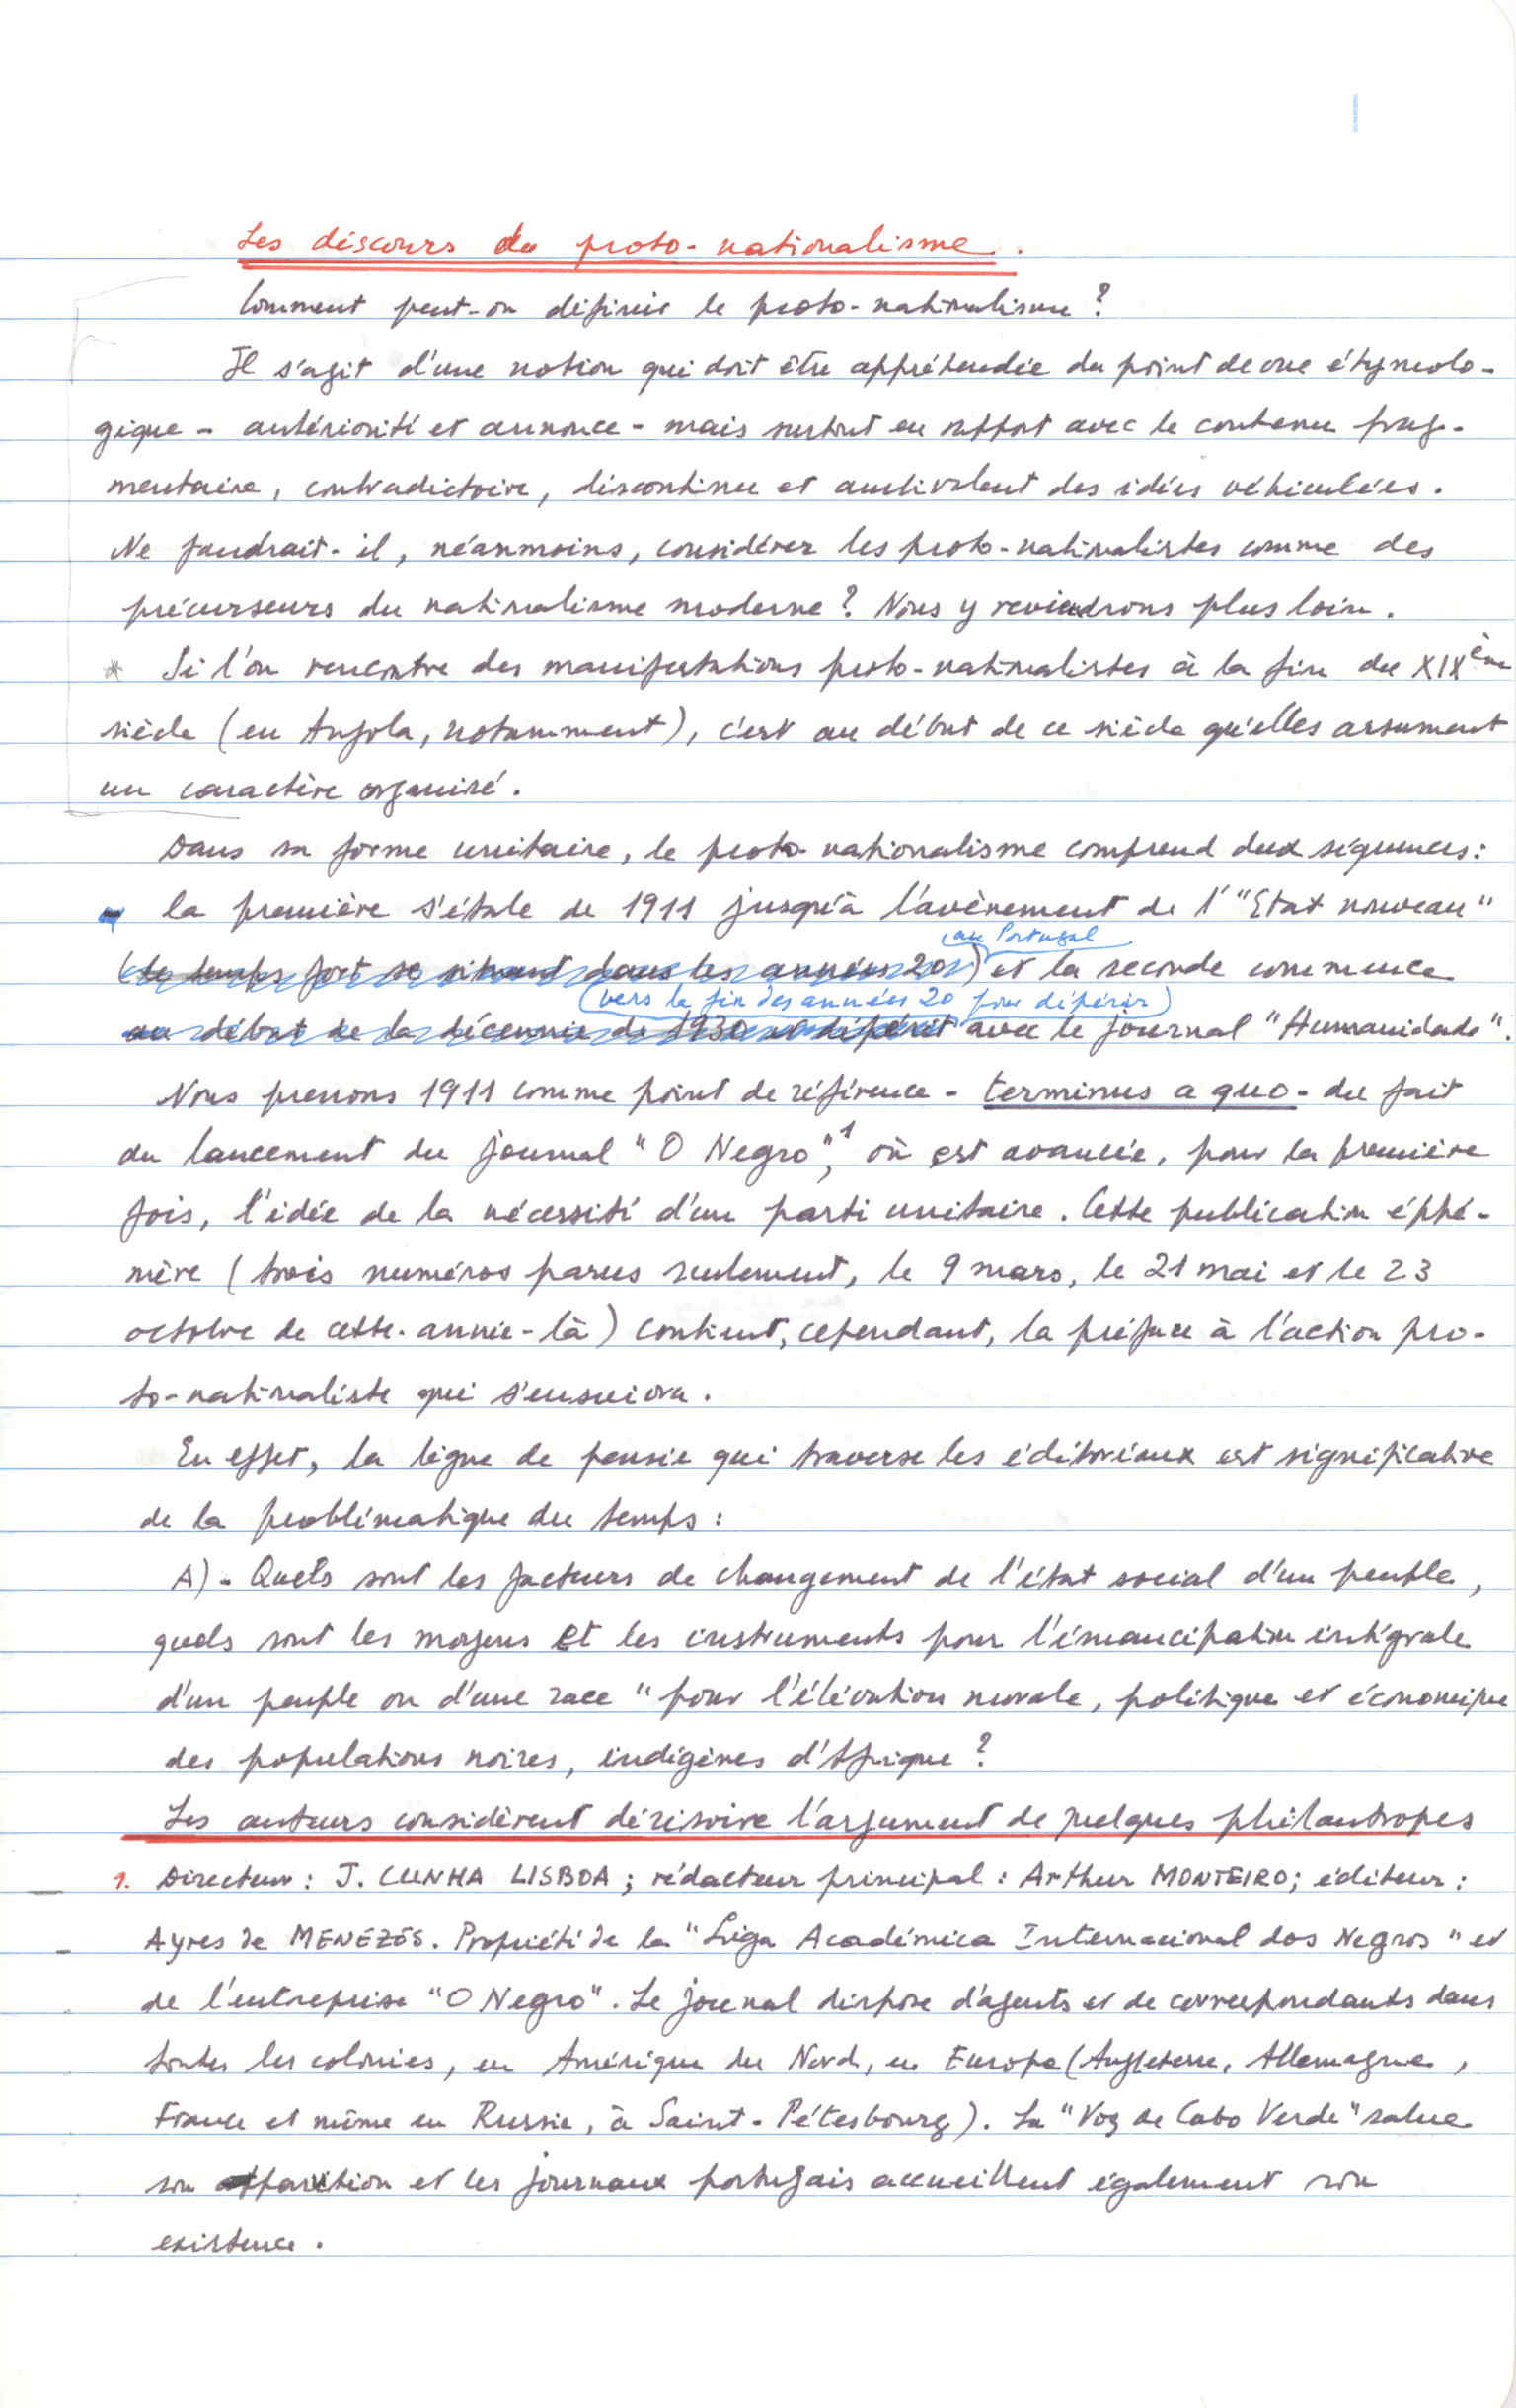 Les discours du proto-nationalisme.
Comment peut-on définir le proto-nationalisme ?
Il s'agit d'une notion qui doit être appréhendée du point de vue étymolo-
gique - antériorité et annonce - mais surtout en rapport avec le contenu frag-
mentaire, contradictoire, discontinu et ambivalent des idées véhiculées.
Ne faudrait-il, néanmoins, considérer les proto-nationalistes comme des
précurseurs du nationalisme moderne ? Nous y reviendrons plus loin.
* Si l'on rencontre des manifestations proto-nationalistes à la fin du XIXème
siècle (en Angola, notamment), c'est au début de ce siècle qu'elles assument
un caractère organisé.
Dans sa forme unitaire, le proto-nationalisme comprend deux séquences :
- la première s'étale de 1911 jusqu'à l'avènement de l' "Etat nouveau"
(au Portugal
(le temps fort se situant dans les années 20) et la seconde commence
(vers la fin des années 20 pour dépérir)
au début de la décennie de 1930 et dépérit avec le journal "Humanidade".
Nous prenons 1911 comme point de référence - terminus a quo - du fait
du lancement du journal "O Negro",1 où est avancée, pour la première
fois, l'idée de la nécessité d'un parti unitaire. Cette publication éphé-
mère (trois numéros parus seulement, le 9 mars, le 21 mai et le 23
octobre de cette-année-là) contient, cependant, la préface à l'action pro-
to-nationaliste qui s'ensuivra.
En effet, la ligne de pensée qui traverse les éditoriaux est significative
de la problématique du temps :
A) - Quels sont les facteurs de changement de l'état social d'un peuple,
quels sont les moyens et les instruments pour l'émancipation intégrale
d'un peuple ou d'une race "pour l'élévation morale, politique et économique
des populations noires, indigènes d'Afrique ?
Les auteurs considèrent dérisoire l'argument de quelques philantropes
1. Directeur : J. CUNHA LISBOA ; rédacteur principal : Arthur MONTEIRO ; éditeur :
Ayres de MENEZES. Propriété de la "Liga Académica Internacional dos Negros" et
de l'entreprise "O Negro". Le journal dispose d'agents et de correspondants dans
toutes les colonies, en Amérique du Nord, en Europe (Angleterre, Allemagne,
France et même en Russie, à Saint-Pétesbourg). La "Voz de Cabo Verde" salue
son apparition et les journaux portugais accueillent également son
existence.